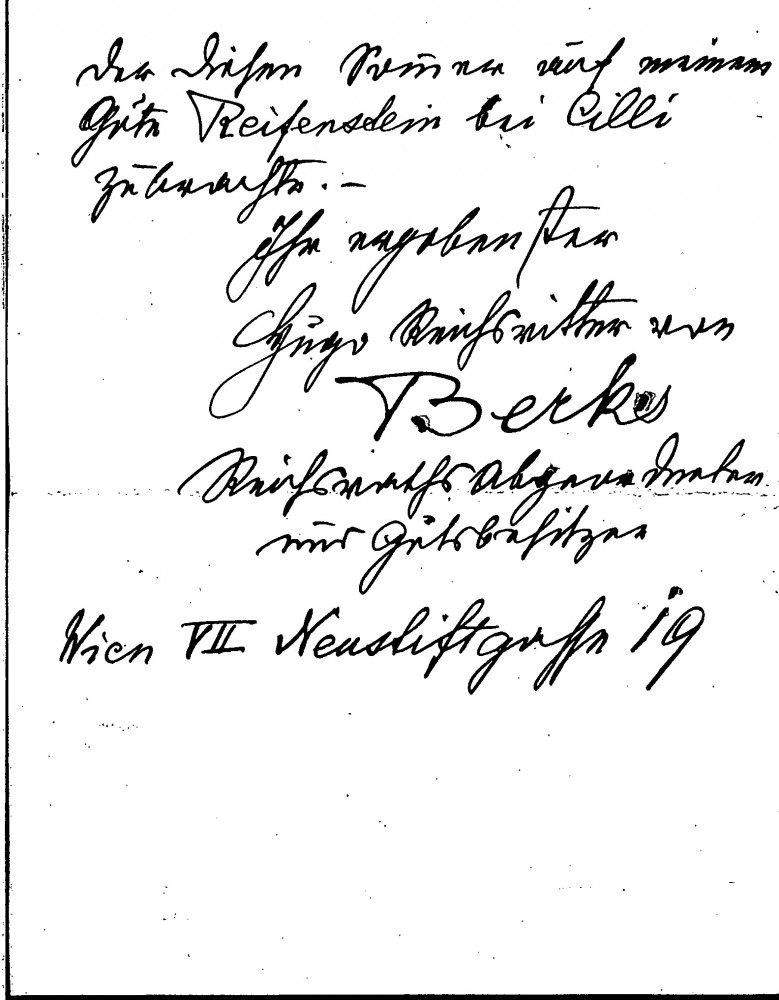 der diesen Som̅er auf meinem
Gute Reifenstein bei Cilli
zubrachte. –
Ihr ergebenster
Hugo Reichsritter von
Berks
Reichsraths Abgeordneter
und Gutsbesitzer
Wien VII Neustiftgasse 19